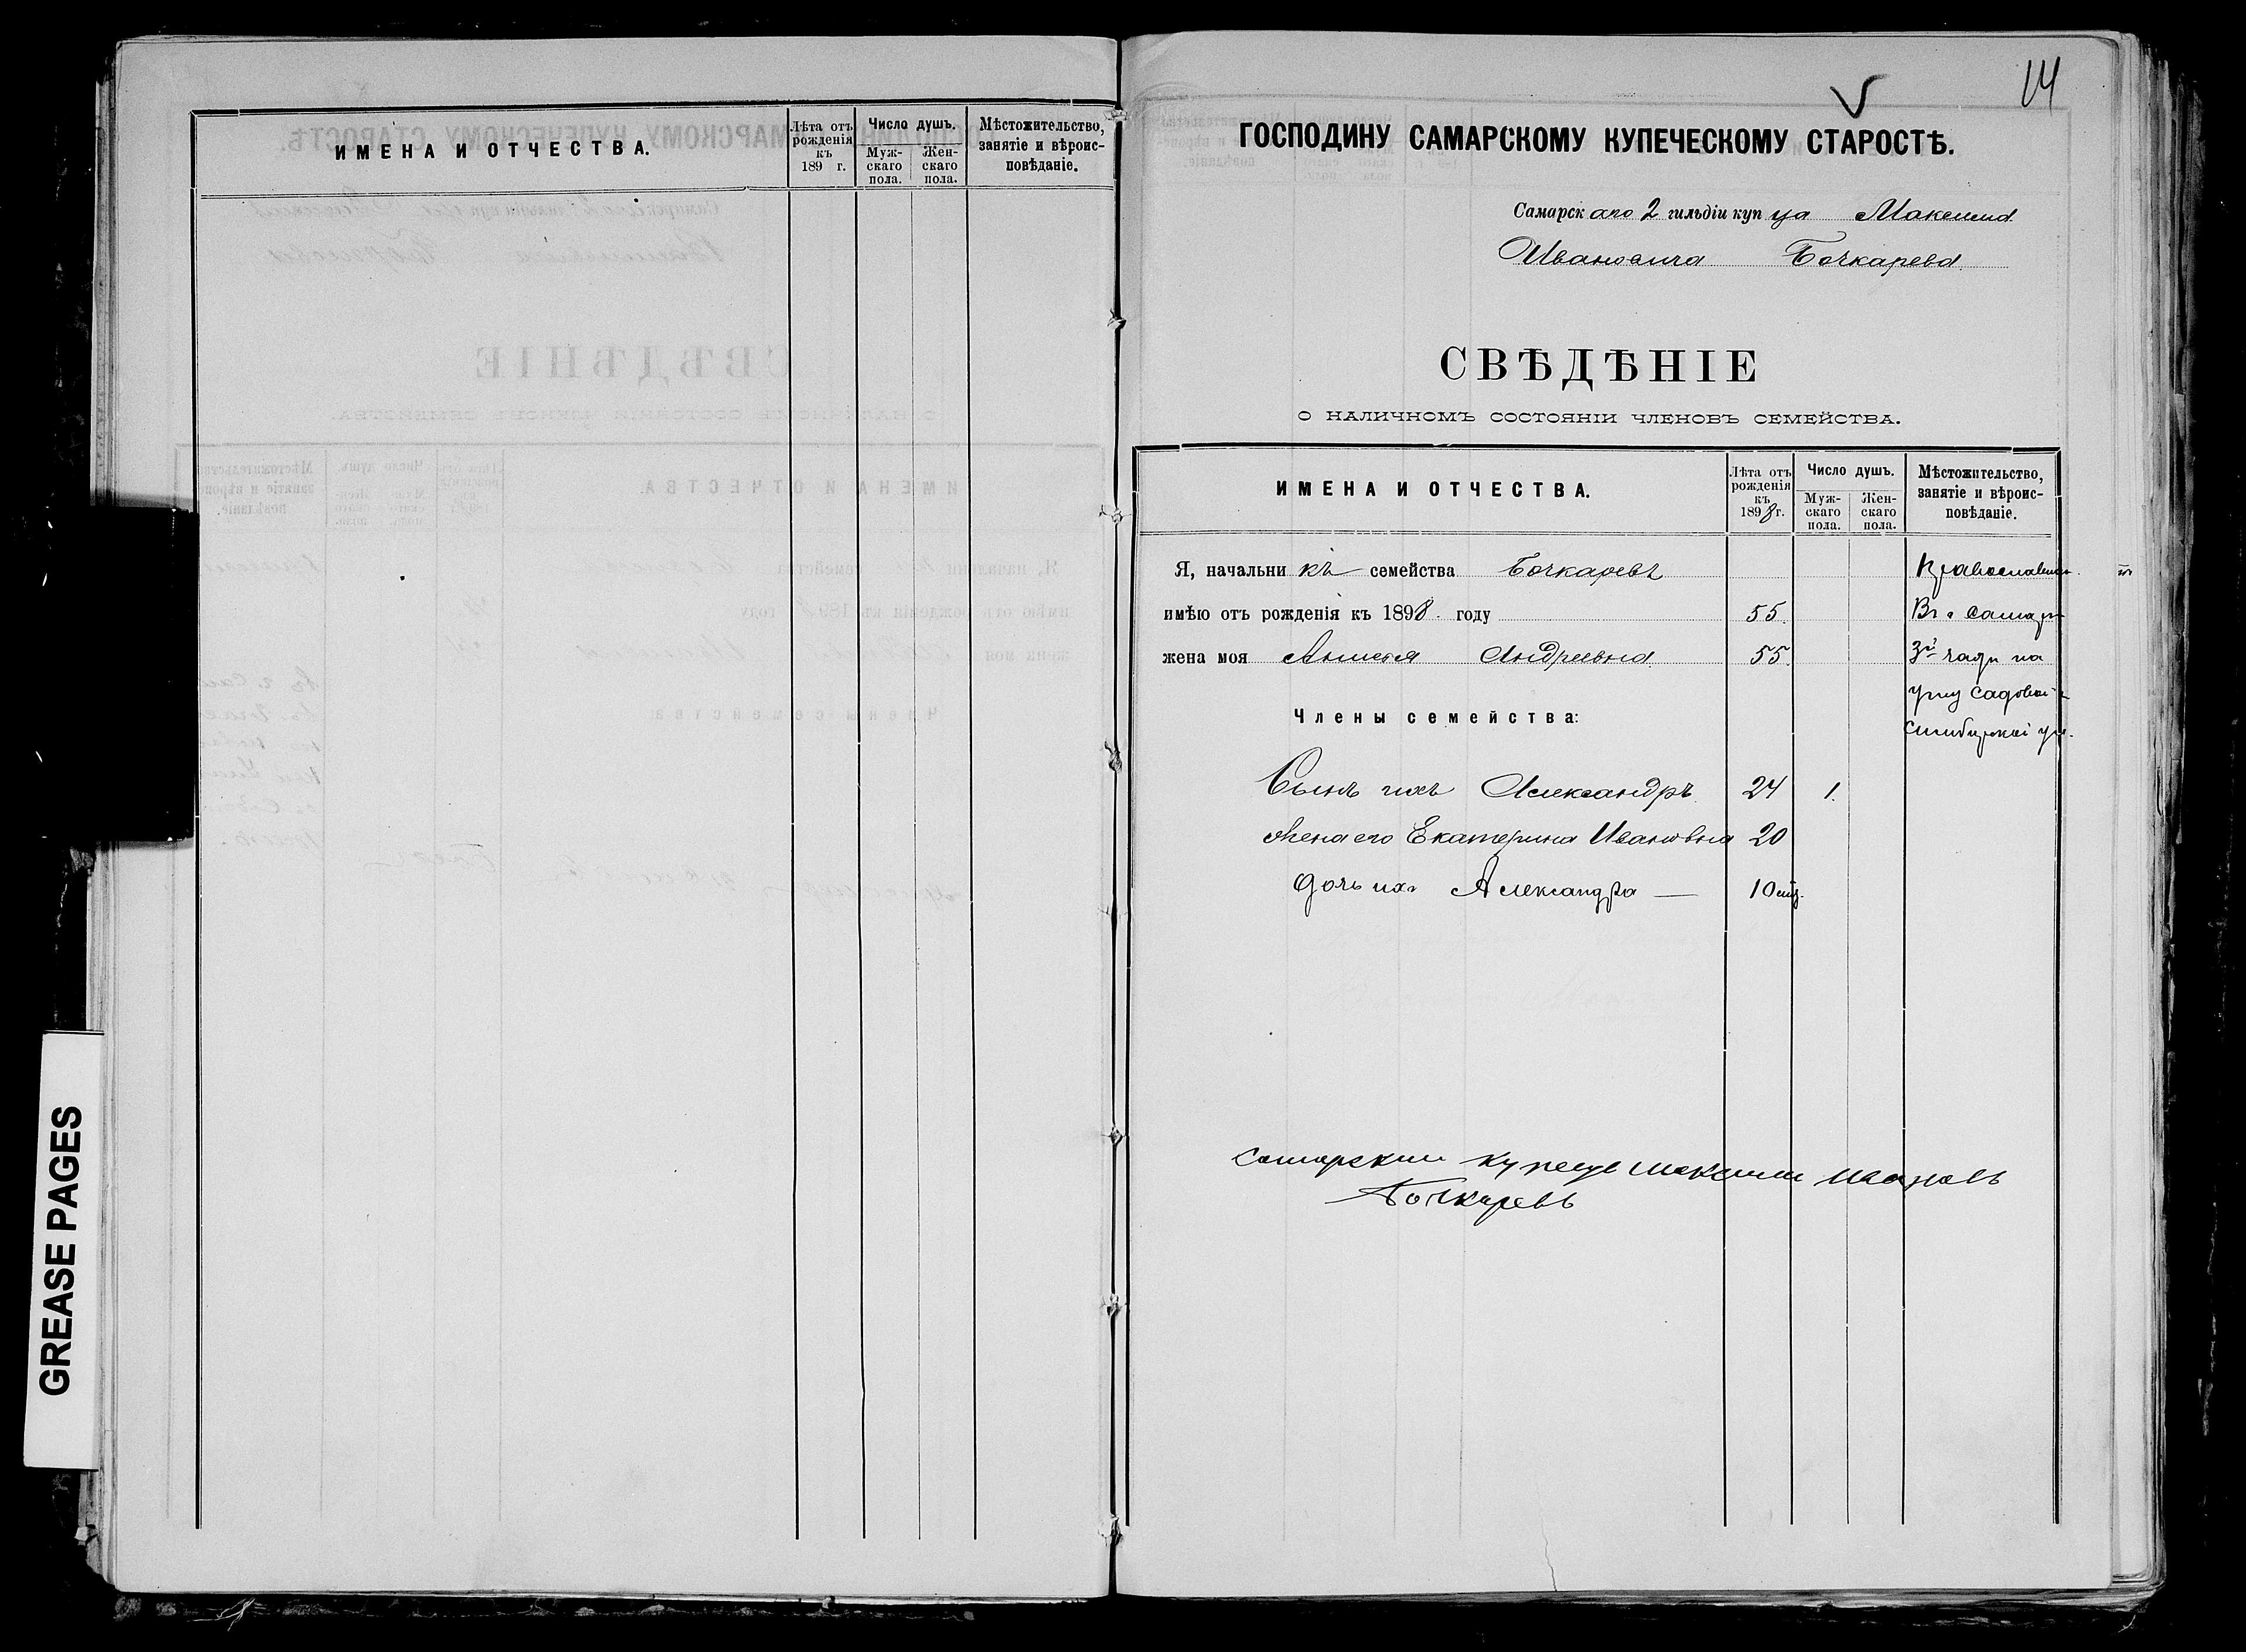 ИМЕНА И ОТЧЕСТВА.
Лѣта отъ рожденія къ 189 г.
Число душъ.
Мужскаго пола.
Женскаго пола.
Мѣстожительство, занятіе и вѣроисповѣданіе.
14
ГОСПОДИНУ САМАРСКОМУ КУПЕЧЕСКОМУ СТАРОСТѢ.
Самарскаго 2 гильдіи купца Максима
Ивановича Бочкарева
СВѢДѢНІЕ
О НАЛИЧНОМЪ СОСТОЯНІИ ЧЛЕНОВЪ СЕМЕЙСТВА.
ИМЕНА И ОТЧЕСТВА.
Лѣта отъ рожденія къ 1898 г.
Число душъ.
Мужскаго пола.
Женскаго пола.
Мѣстожительство, занятіе и вѣроисповѣданіе.
Я, начальникъ семейства Бочкаревъ
имѣю отъ рожденія къ 1898. году 55. Въ г Самар
жена моя Андреевна 55. 3й части на
улиц Садовой
Симбирской ул.
Члены семейства:
Сынъ ихъ Александръ 24 1.
Жена его Екатерина Ивановна 20
Дочь ихъ Александра — 10
Самарский купецъ Максим Ивановъ
Бочкаревъ
GREASE PAGES